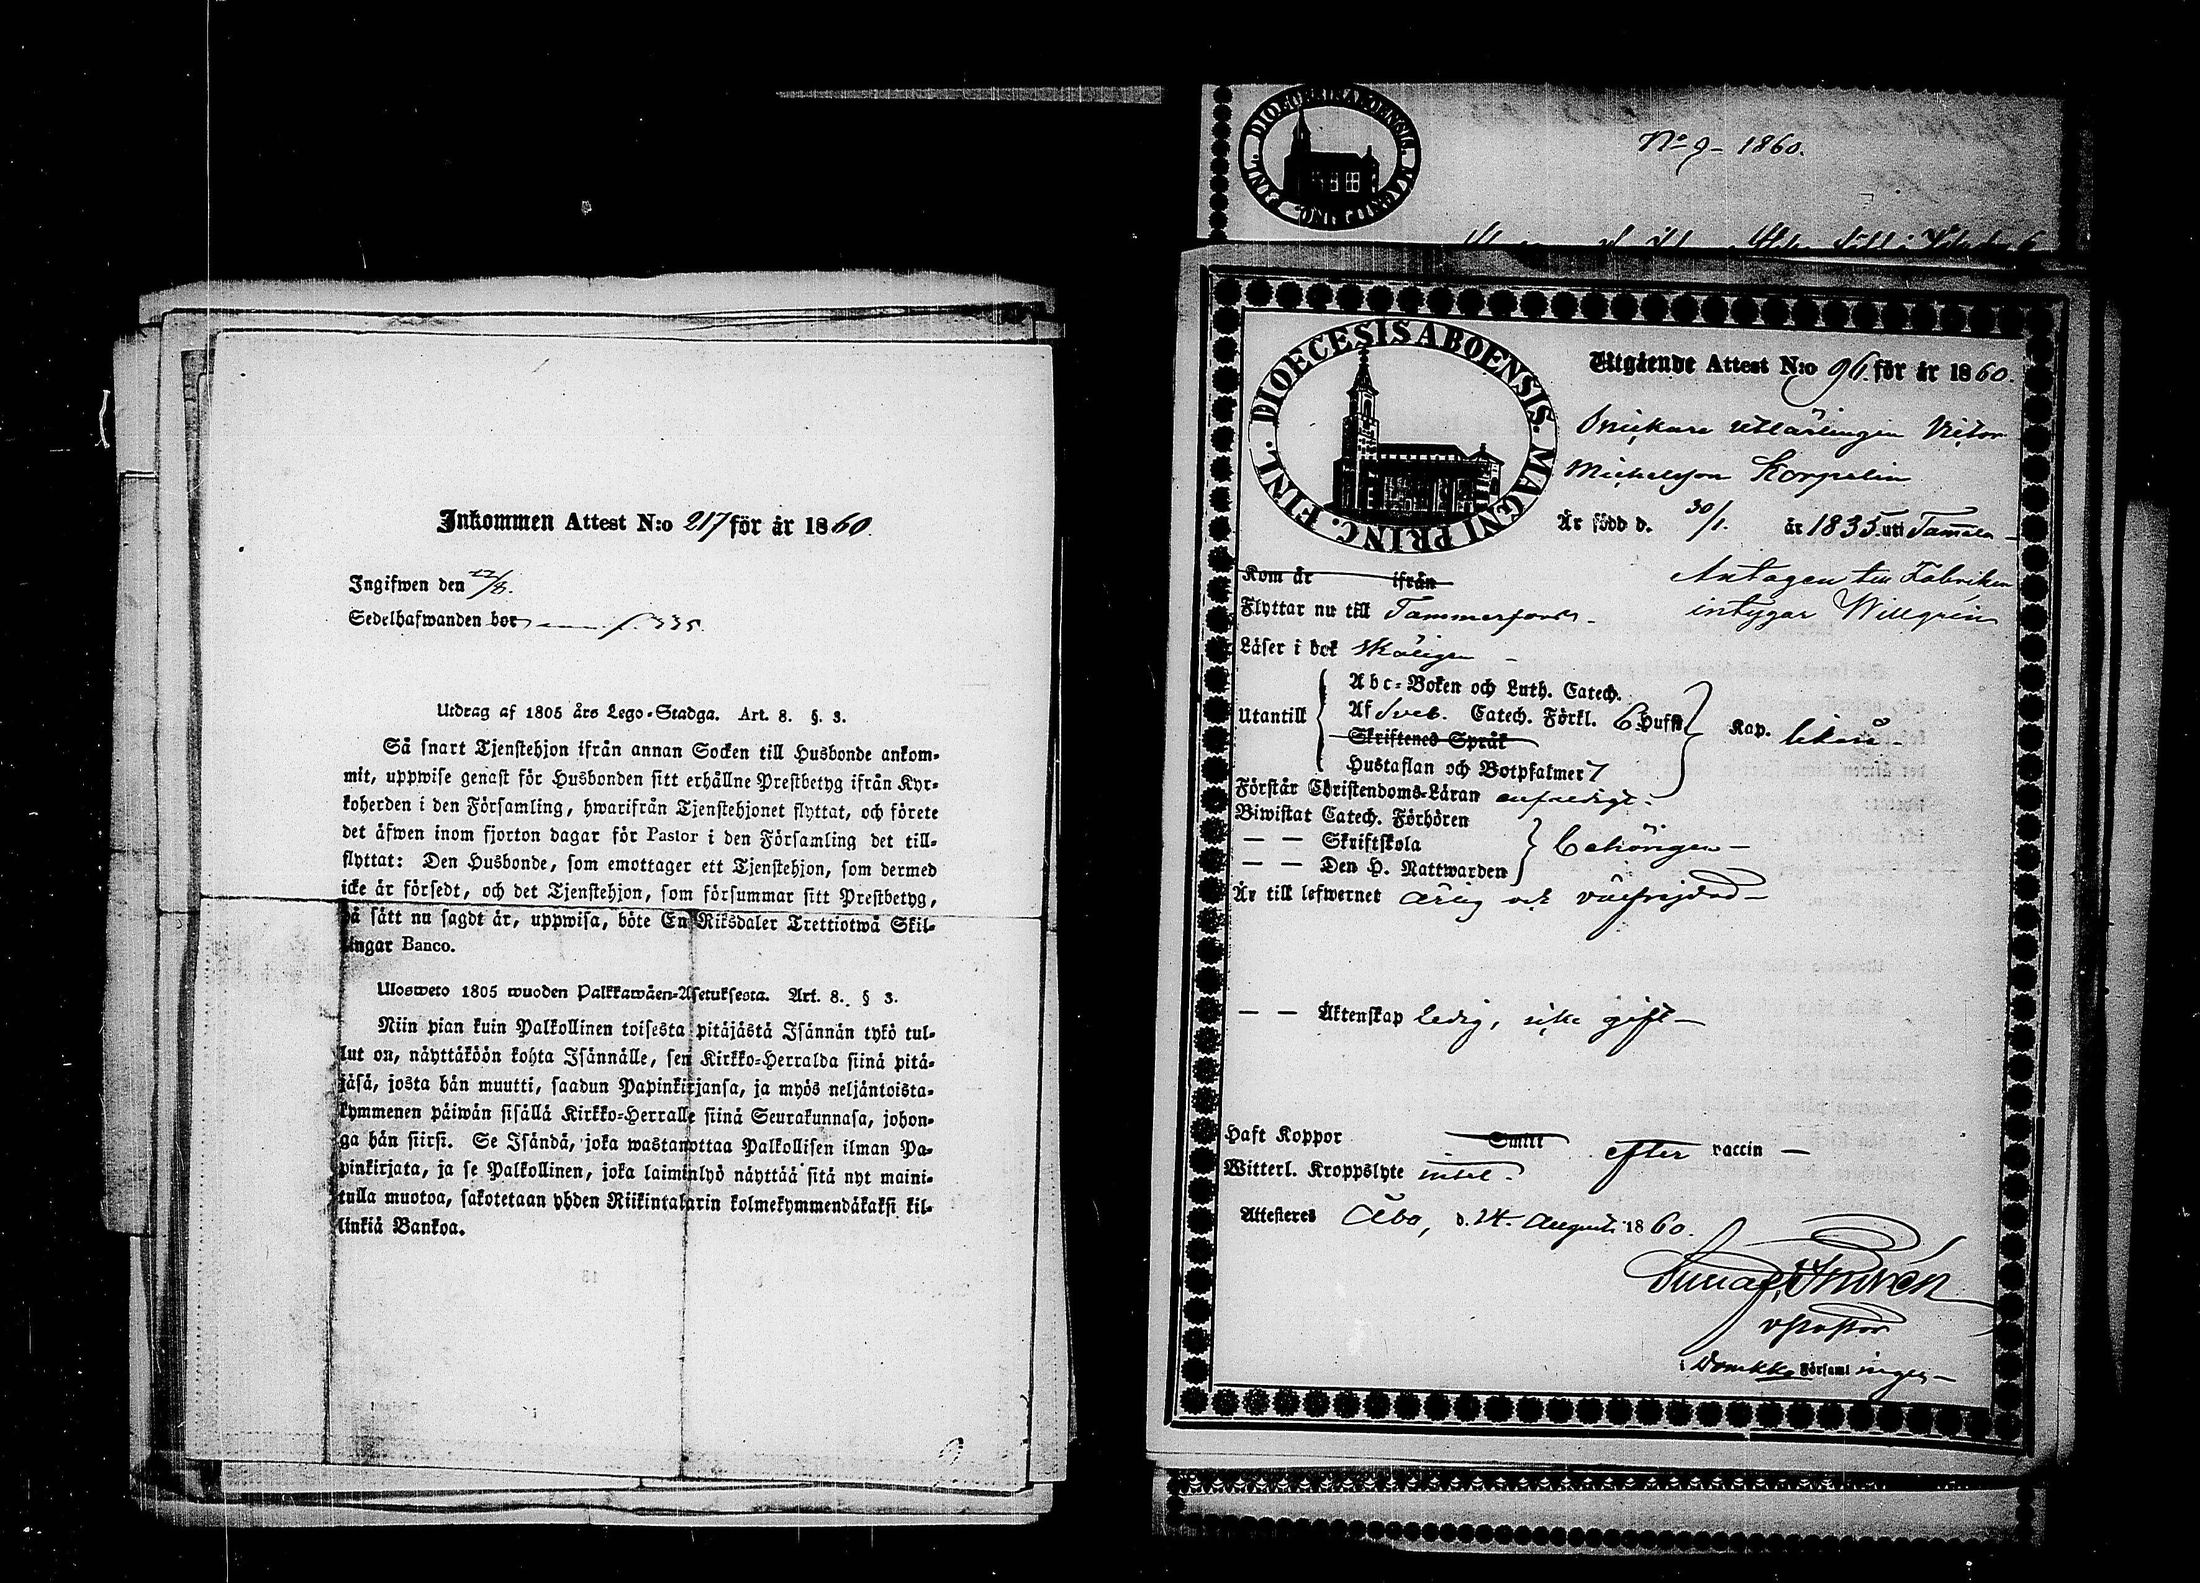 Inkommen Attest N:o 217 för år 1860.
Ingifwen den 22/8.
Sedelhafwanden bor f. 335.
Utdrag af 1805 års Lego-Stadga. Art. 8. §. 3.
Så snart Tjenstehjon ifrån annan Socken till Husbonde ankom-
mit, uppwise genast för Husbonden sitt erhållne Prestbetyg ifrån Kyr-
koherden i den Församling, hwarifrån Tjenstehjonet flyttat, och förete
det äfwen inom fjorton dagar för Pastor i den Församling det till-
flyttat: Den Husbonde, som emottager ett Tjenstehjon, som dermed
icke är försedt, och det Tjenstehjon, som försummar sitt Prestbetyg,
på sätt nu sagdt är, uppwisa, böte En Riksdaler Trettiotwå Skil-
lingar Banco.
Ulosweto 1805 wuoden Palkkawäen-Asetuksesta. Art. 8. § 3.
Niin pian kuin Palkollinen toisesta pitäjästä Isännän tykö tul-
lut on, näyttäköön kohta Isännälle, sen Kirkko-Herralda siinä pitä-
jäsä, josta hän muutti, saadun Papinkirjansa, ja myös neljäntoista-
kymmenen päiwän sisällä Kirkko-Herralle siinä Seurakunnasa, johon-
ga hän siirsi. Se Isändä, joka wastanottaa Palkollisen ilman Pa-
pinkirjata, ja se Palkollinen, joka laiminlyö näyttää sitä nyt maini-
tulla muotoa, sakotetaan yhden Riikintalarin kolmekymmendäkaksi kil-
linkiä Bankoa.
9
FINL. DIOECESIS ABOENSIS. MAGNI PRINC.
No 9 - 1860.
FINL. DIOECESIS ABOENSIS. MAGNI PRINC.
Utgående Attest N:o 96 för år 1860.
Snickare utlärlingen Victor
Michelsson Korpelin
Är född d. 30/1. år 1835. uti Tammela
Kom år ifrån
Antagen till Fabriken
Flyttar nu till Tammerfors
intygar Willgrén
Läser i bok skäligen
Utantill
Abc-Boken och Luth. Catech.
Af Sveb. Catech. Förkl. 6 Hufst
Skriftenes Språk
Hustaflan och Botpsalmer 7
Kap. likaså
Förstår Christendoms-Läran enfaldigt
Biwistat Catech. Förhören
— — Skriftskola
— — Den H. Nattwarden
behörigen
Är till lefwernet ärlig och välfrejdad
— — Äktenskap ledig, icke gift
Haft Koppor Smitt efter vaccin
Witterl. Kroppslyte intet.
Attesteres Åbo, d. 24. Augusti 1860.
v Pastor
i Domkko Församlingen